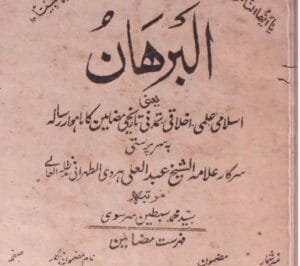 البرهان
یعنی
اسلامی علمی، اخلاقی، تمدنی و تاریخی مضامین کا ماہوار رسالہ
بہ سرپرستی
سرکار علامہ الشیخ عبد العلی ہروی الطہرانی مدظلہ العالی
مرتبہ
سید محمد سبطین سرسوی
فہرست مضامین
نمبر شمار مضمون نام مضمون نگار صفحہ